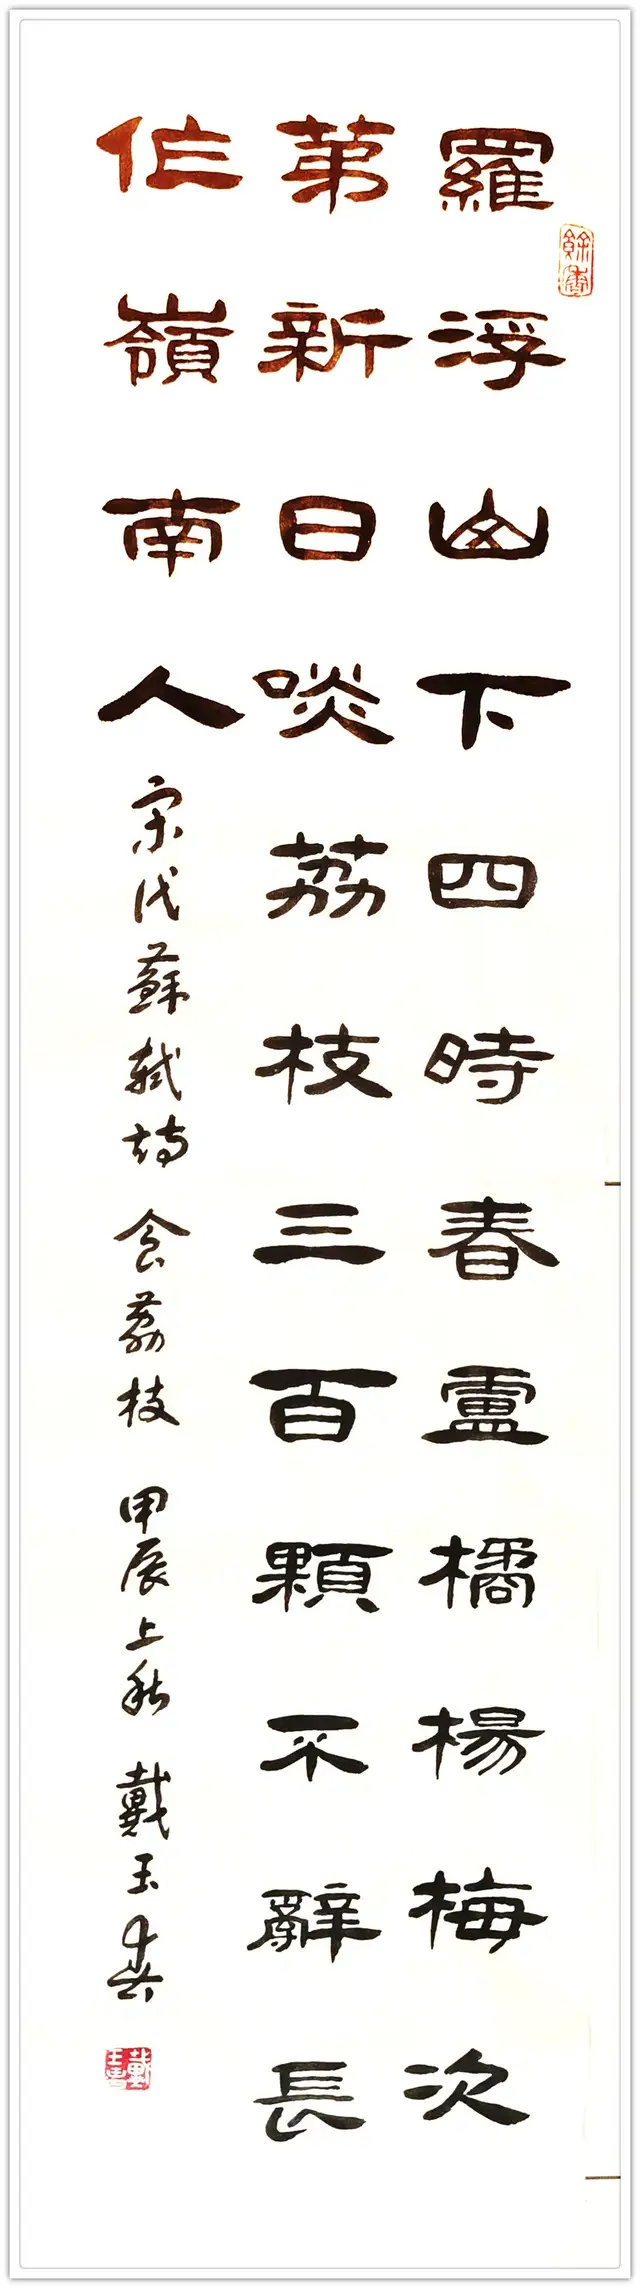 羅浮山下四時春盧橘楊梅次
第新日啖荔枝三百顆不辭長
作嶺南人
宋代蘇軾詩 食荔枝 甲辰上秋 戴玉